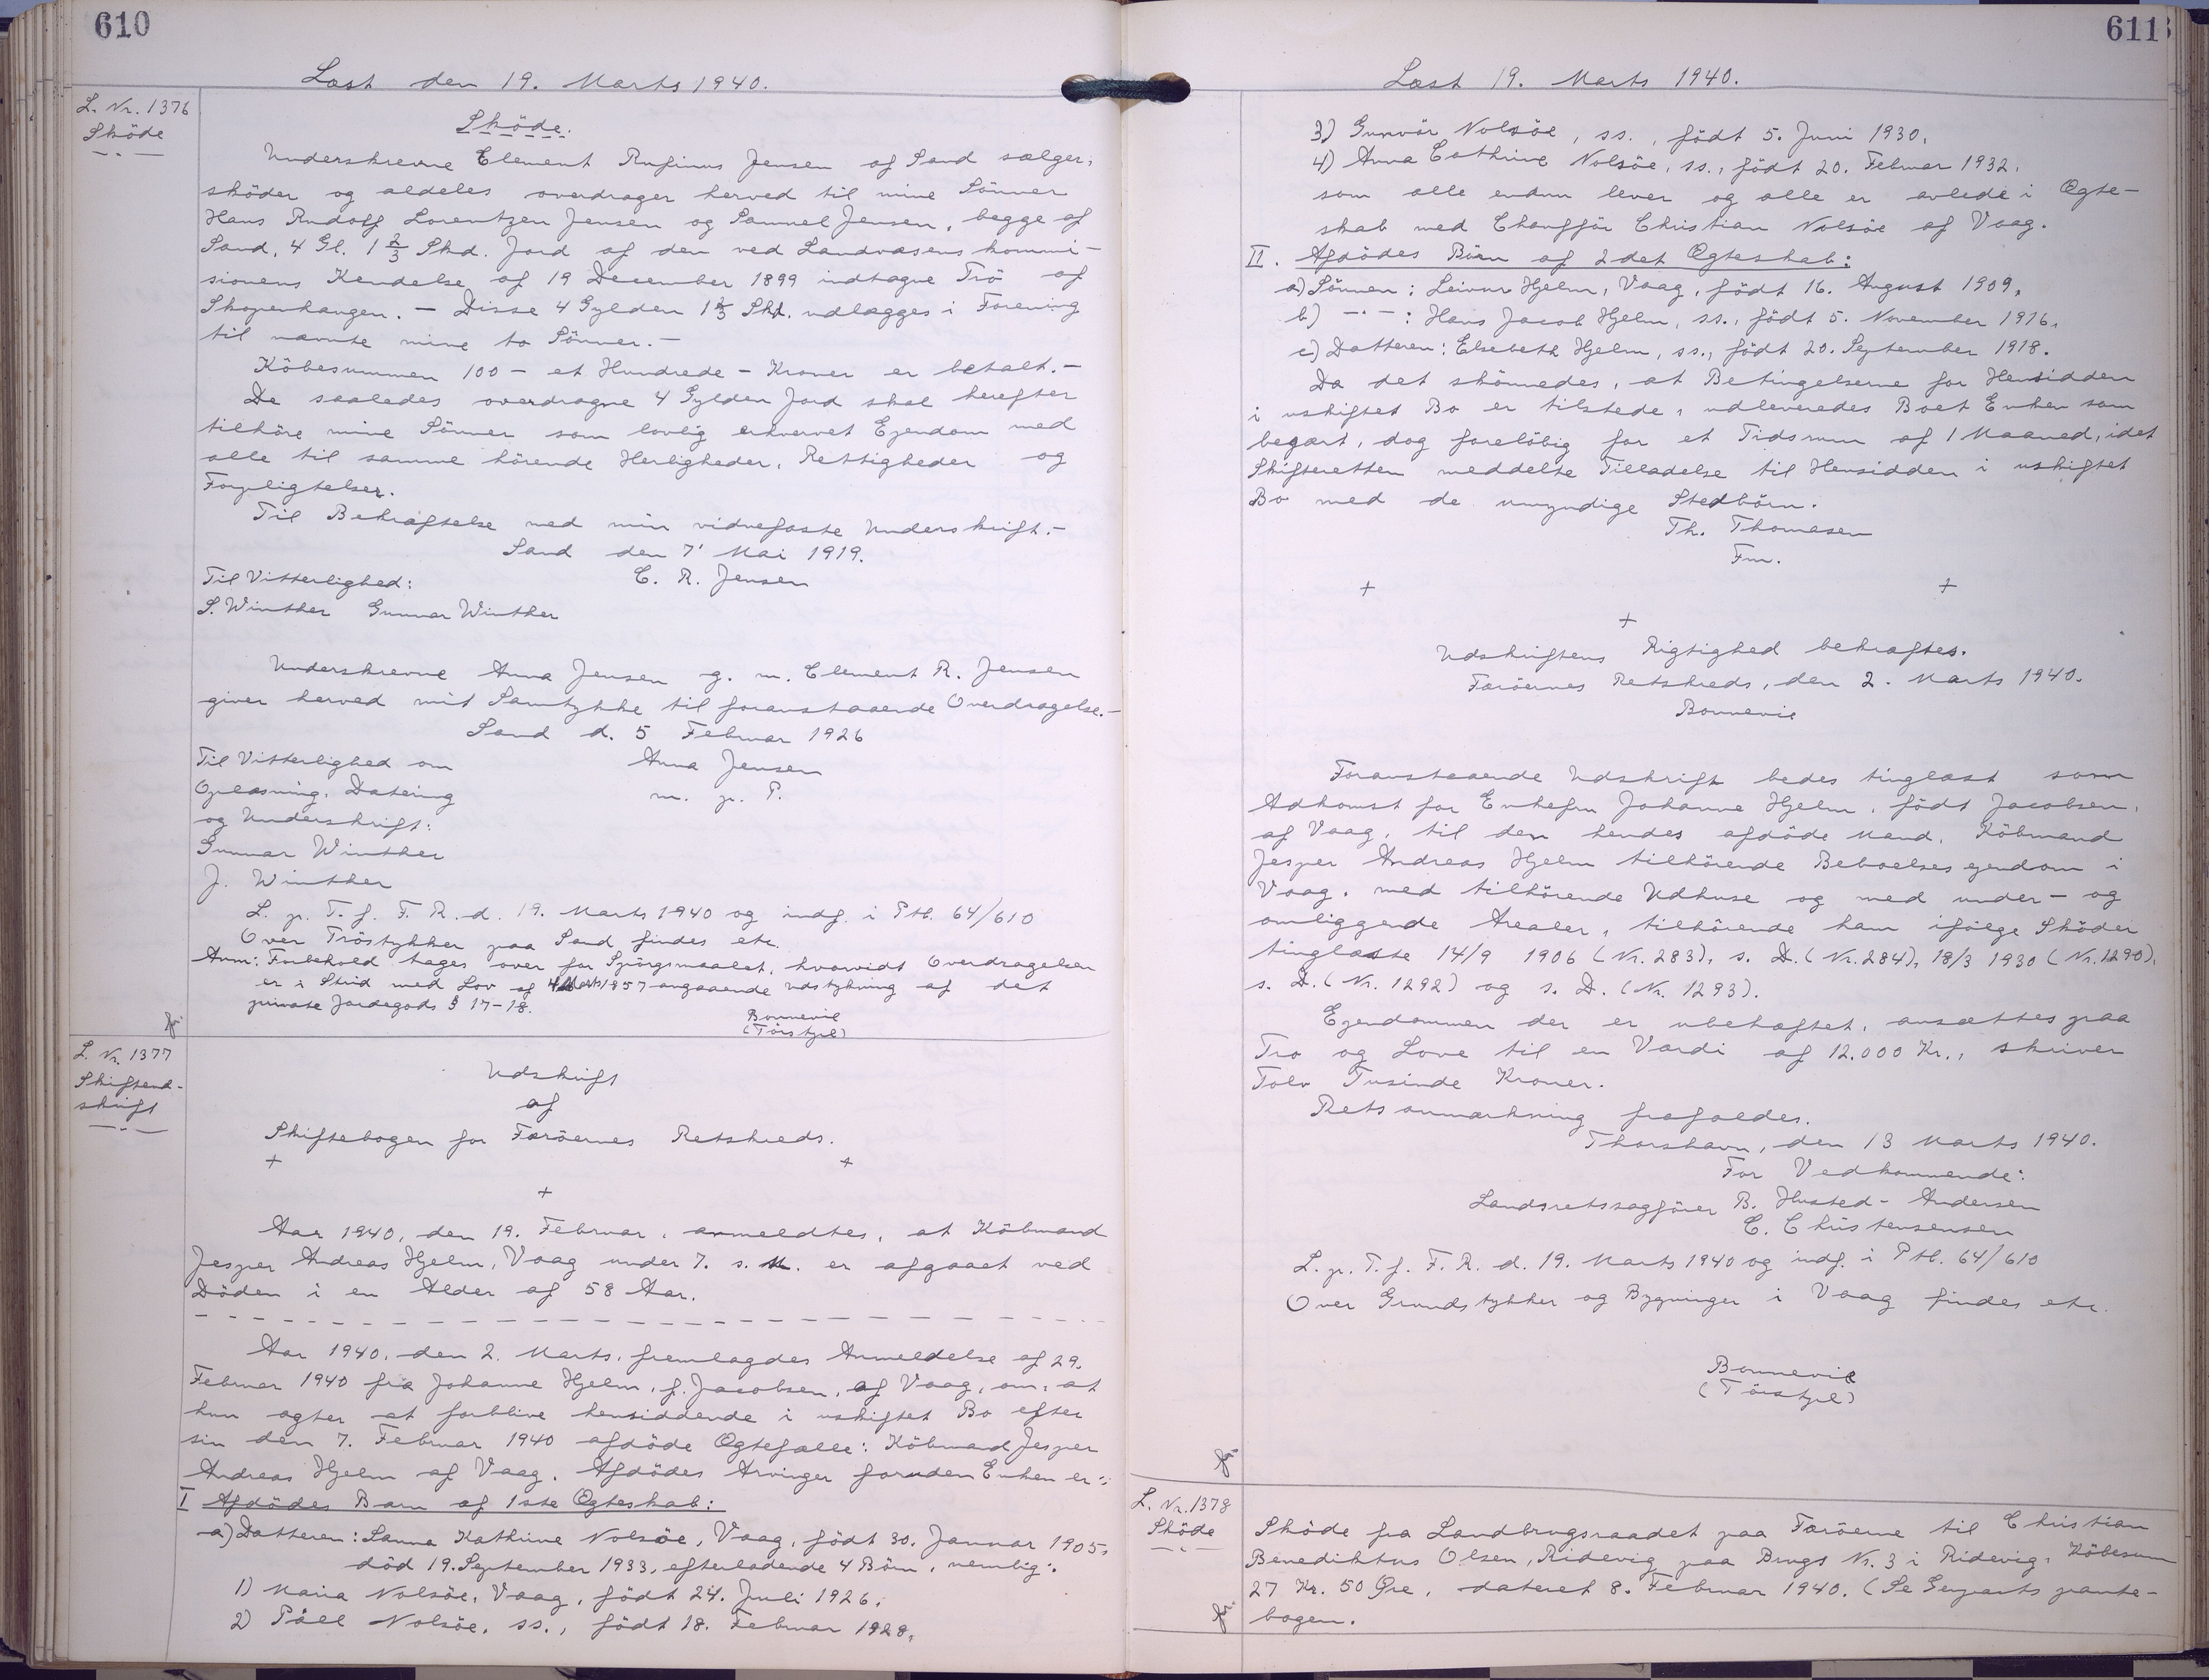 610
Læst den 19. Marts 1940.
L. Nr. 1376
Sköde
Sköde.
Underskrevne Clement Rufinus Jensen af Sand sælger,
sköder og aldeles overdrager herved til mine Sönner
Hans Rudolf Lorentzen Jensen og Samuel Jensen, begge af
Sand, 4 Gl. 1 2/3 Skd. Jord af den ved Landvæsenskommi-
sionens Kendelse af 19 December 1899 indtagne Trö af
Skopenhaugen. - Disse 4 Gylden 1 2/3 Skd. udlægges i Forening
til nævnte mine to Sönner. -
Köbesummen 100 - et Hundrede - Kroner er betalt. -
De saaledes overdragne 4 Gylden Jord skal herefter
tilhöre mine Sönner som lovlig erhvervet Ejendom med
alle til samme hörende Herligheder, Rettigheder og
Forpligtelser.
Til Bekræftelse med min vidnefaste Underskrift. -
Sand den 7' Mai 1919.
Til Vitterlighed: C. R. Jensen
S. Winther Gunnar Winther
Underskrevne Anna Jensen g. m. Clement R. Jensen
giver herved mit Samtykke til foranstaaende Overdragelse. -
Sand d. 5 Februar 1926
Til Vitterlighed om Anna Jensen
Oplæsning, Datering m. p. P.
og Underskrift:
Gunnar Winther
J. Winther
L. p. T. f. F. R. d. 19. Marts 1940 og indf. i Ptb. 64/610
Over Tröstykker paa Sand findes etc.
Anm: Forbehold tages over for Spörgsmaalet, hvorvidt Overdragelsen
er i Strid med Lov af 4 Marts 1857 angaaende Udstykning af det
private Jordegods § 17-18.
Bonnevie
(Törstzel)
L. Nr. 1377
Skifteud-
skrift
Udskrift
af
Skiftebogen for Færöernes Retskreds.
+ +
+
Aar 1940, den 19. Februar, anmeldtes, at Köbmand
Jesper Andreas Hjelm, Vaag under 7. s. M. er afgaaet ved
Döden i en Alder af 58 Aar.
Aar 1940, den 2. Marts, fremlagdes Anmeldelse af 29.
Februar 1940 fra Johanne Hjelm, f. Jacobsen, af Vaag, om, at
hun agter at forblive hensiddende i uskiftet Bo efter
sin den 7. Februar 1940 afdöde Ægtefælle: Köbmand Jesper
Andreas Hjelm af Vaag. Afdödes Arvinger foruden Enken er:
I Afdödes Barn af 1ste Ægteskab:
a) Datteren: Sanna Kathrine Nolsöe, Vaag, födt 30. Januar 1905,
död 19. September 1933, efterladende 4 Börn, nemlig:
1) Maria Nolsöe, Vaag, födt 24. Juli 1926,
2) Páll Nolsöe, ss., födt 18. Februar 1928,
611
Læst 19. Marts 1940.
3) Gunvör Nolsöe, ss., födt 5. Juni 1930,
4) Anna Cathrine Nolsöe, ss., födt 20. Februar 1932,
som alle endnu lever og alle er avlede i Ægte-
skab med Chaufför Christian Nolsöe af Vaag.
II. Afdödes Börn af 2det Ægteskab:
a) Sönnen: Leivur Hjelm, Vaag, födt 16. August 1909,
b) -·-: Hans Jacob Hjelm, ss., födt 5. November 1916,
c) Datteren: Elsebeth Hjelm, ss., födt 20. September 1918.
Da det skönnedes, at Betingelserne for Hensidden
i uskiftet Bo er tilstede, udleveredes Boet Enken som
begært, dog foreløbig for et Tidsrum af 1 Maaned, idet
Skifteretten meddelte Tilladelse til Hensidden i uskiftet
Bo med de umyndige Stedbörn.
Th. Thomasen
Fm.
+ +
+
Udskriftens Rigtighed bekræftes.
Færöernes Retskreds, den 2. Marts 1940.
Bonnevie
Foranstaaende Udskrift bedes tinglæst som
Adkomst for Enkefru Johanne Hjelm, födt Jacobsen,
af Vaag, til den hendes afdöde Mand, Köbmand
Jesper Andreas Hjelm tilhörende Beboelsesejendom i
Vaag, med tilhörende Udhuse og med under- og
omliggende Arealer, tilhörende ham ifölge Sköder
tinglæste 14/9 1906 (Nr. 283), s. D. (Nr. 284), 18/3 1930 (Nr. 1290),
s. D. (Nr. 1292) og s. D. (Nr. 1293).
Ejendommen der er ubehæftet, ansættes paa
Tro og Love til en Værdi af 12.000 Kr., skriver
Tolv Tusinde Kroner.
Retsanmærkning frafaldes.
Thorshavn, den 13 Marts 1940.
For Vedkommende:
Landsretssagförer B. Husted-Andersen
C. Christensensen
L. p. T. f. F. R. d. 19. Marts 1940 og indf. i Ptb. 64/610
Over Grundstykker og Bygninger i Vaag findes etc.
Bonnevie
(Törstzel)
L. Nr. 1378
Sköde
Sköde fra Landbrugsraadet paa Færöerne til Christian
Benedihtus Olsen, Ridevig paa Brugs Nr. 3 i Ridevig, Köbesum
27 Kr. 50 Øre, dateret 8. Februar 1940. (Se Genparts pante-
bogen.